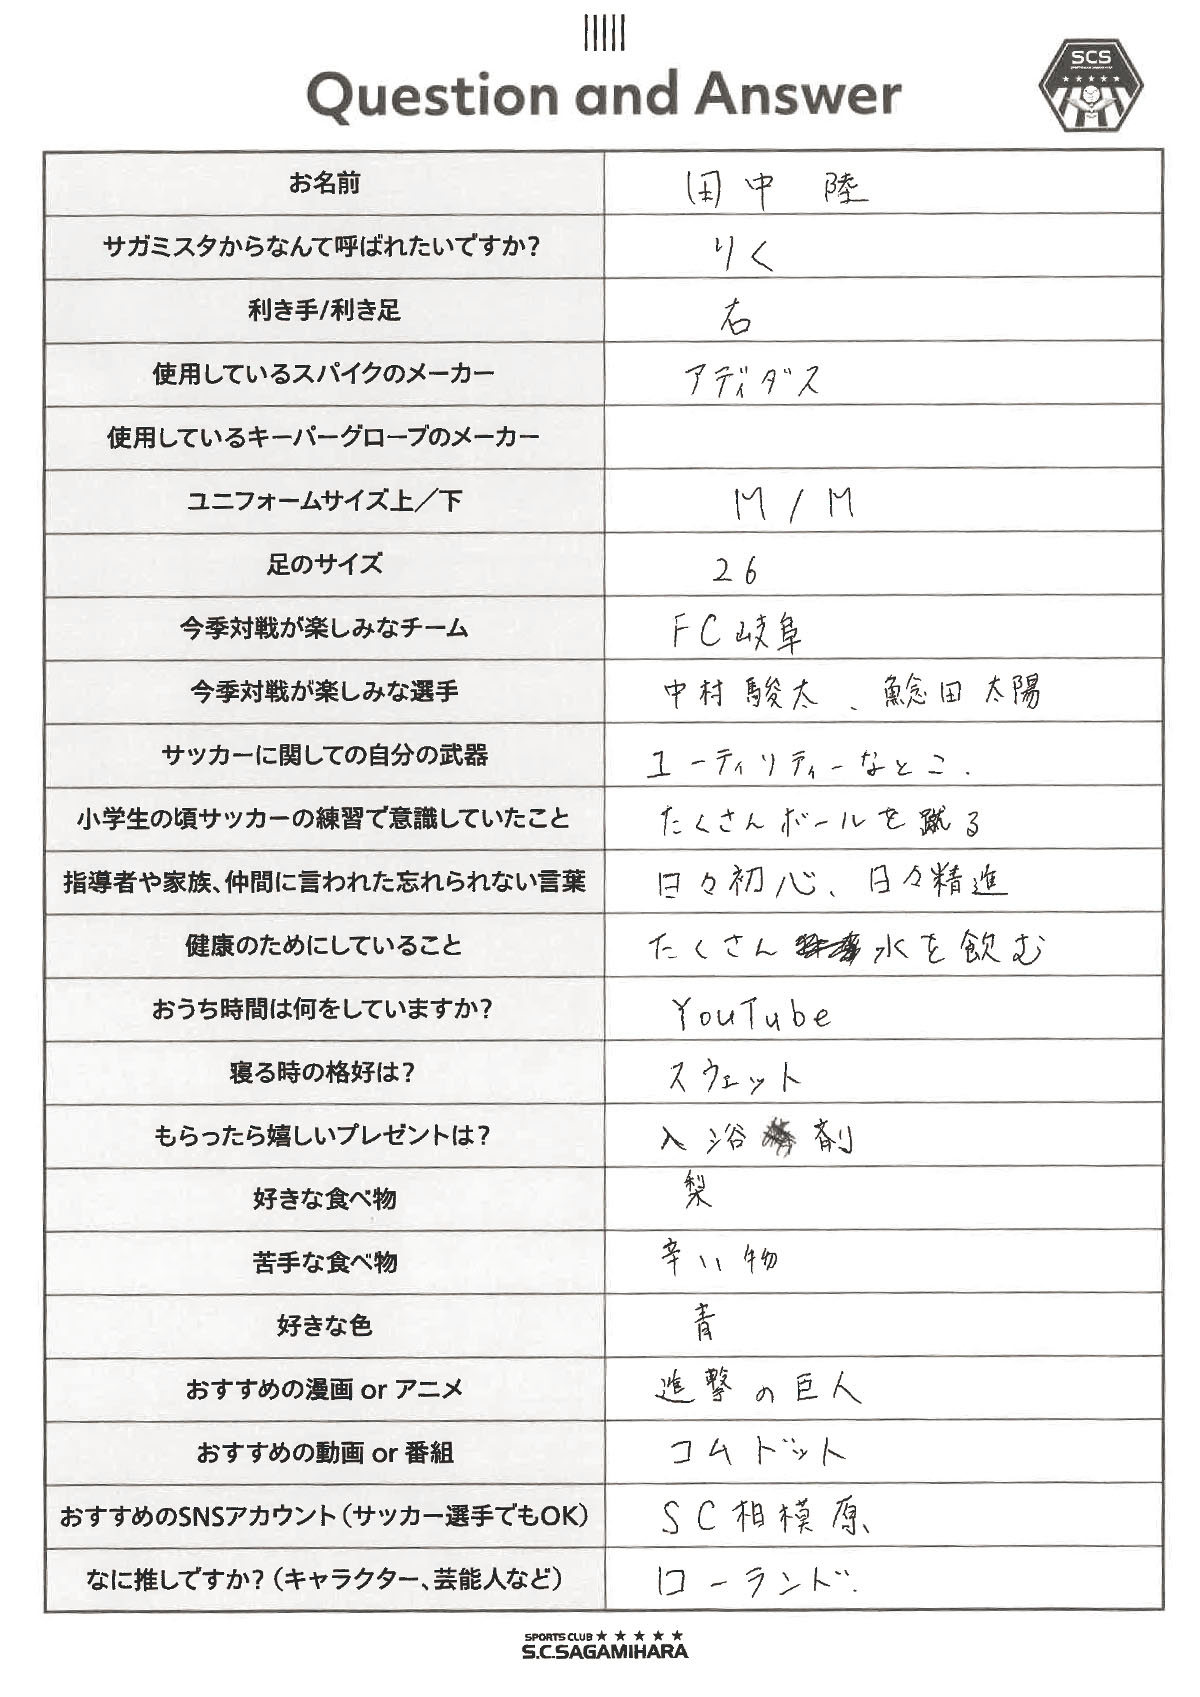 Question and Answer
SCS
お名前
田中 陸
サガミスタからなんて呼ばれたいですか？
りく
利き手/利き足
右
使用しているスパイクのメーカー
アディダス
使用しているキーパーグローブのメーカー
ユニフォームサイズ上／下
M / M
足のサイズ
26
今季対戦が楽しみなチーム
FC岐阜
今季対戦が楽しみな選手
中村駿太、鯰田太陽
サッカーに関しての自分の武器
ユーティリティーなとこ.
小学生の頃サッカーの練習で意識していたこと
たくさんボールを蹴る
指導者や家族、仲間に言われた忘れられない言葉
日々初心、日々精進
健康のためにしていること
たくさん水を飲む
おうち時間は何をしていますか？
YouTube
寝る時の格好は？
スウェット
もらったら嬉しいプレゼントは？
入浴剤
好きな食べ物
梨
苦手な食べ物
辛い物
好きな色
青
おすすめの漫画 or アニメ
進撃の巨人
おすすめの動画 or 番組
コムドット
おすすめのSNSアカウント（サッカー選手でもOK）
SC相模原、
なに推しですか？（キャラクター、芸能人など）
ローランド.
SPORTS CLUB ★★★★★
S.C.SAGAMIHARA